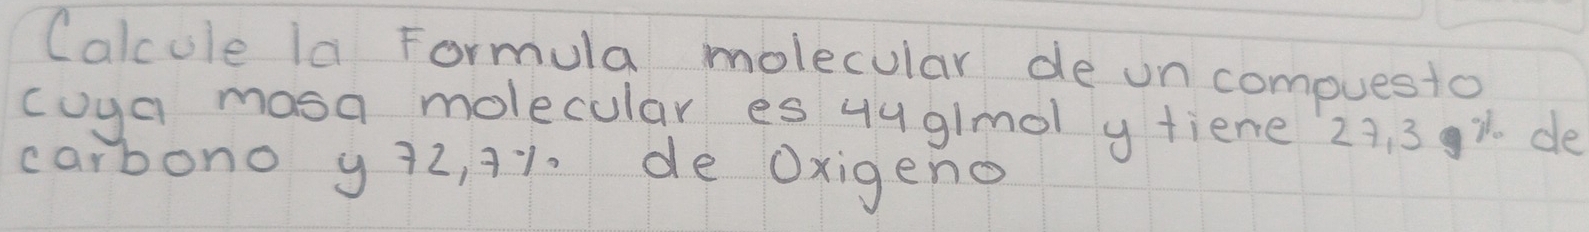 Calcule la Formula molecular de un compuesto
cuya masa molecular es 44 g/mol y tiene 27,3 % de
carbono y 72,7%. de Oxigeno